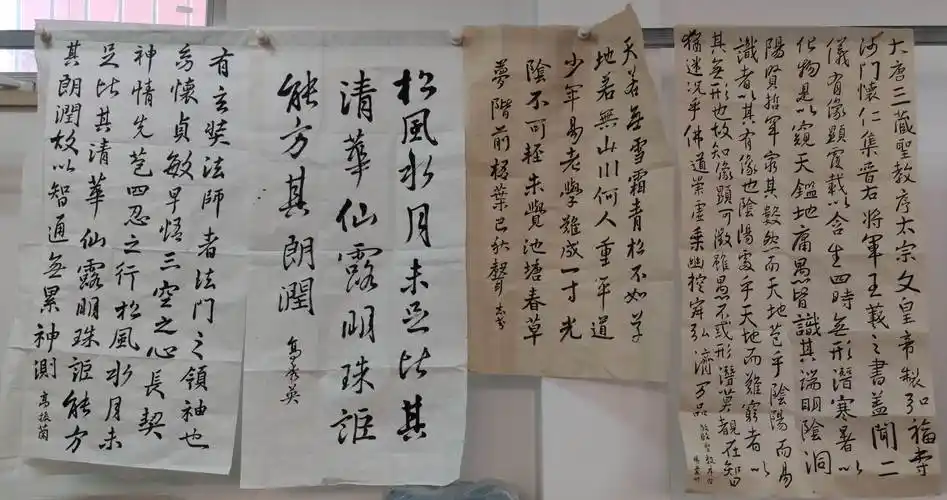 大唐三藏聖教序太宗文皇帝製弘福寺
沙門懷仁集晉右將軍王羲之書蓋聞二
儀有像顯覆載以含生四時無形潛寒暑以
化物是以窺天鑑地庸愚皆識其端明陰洞
陽賢哲罕窮其數然而天地苞乎陰陽而易
識者以其有像也陰陽處乎天地而難窮者以
其無形也故知像顯可徵雖愚不惑形潛莫覩在智
猶迷況乎佛道崇虛乘幽控寂弘濟万品
天若無雪霜青松不如草
地若無山川何人重平道
少年易老學難成一寸光
陰不可輕未覺池塘春草
夢階前梧葉已秋聲
松風水月未足比其
清華仙露明珠詎
能方其朗潤
高義英
有玄奘法師者法門之領袖也
幼懷貞敏早悟三空之心長契
神情先苞四忍之行松風水月未
足比其清華仙露明珠詎能方
其朗潤故以智通無累神測
高振茵